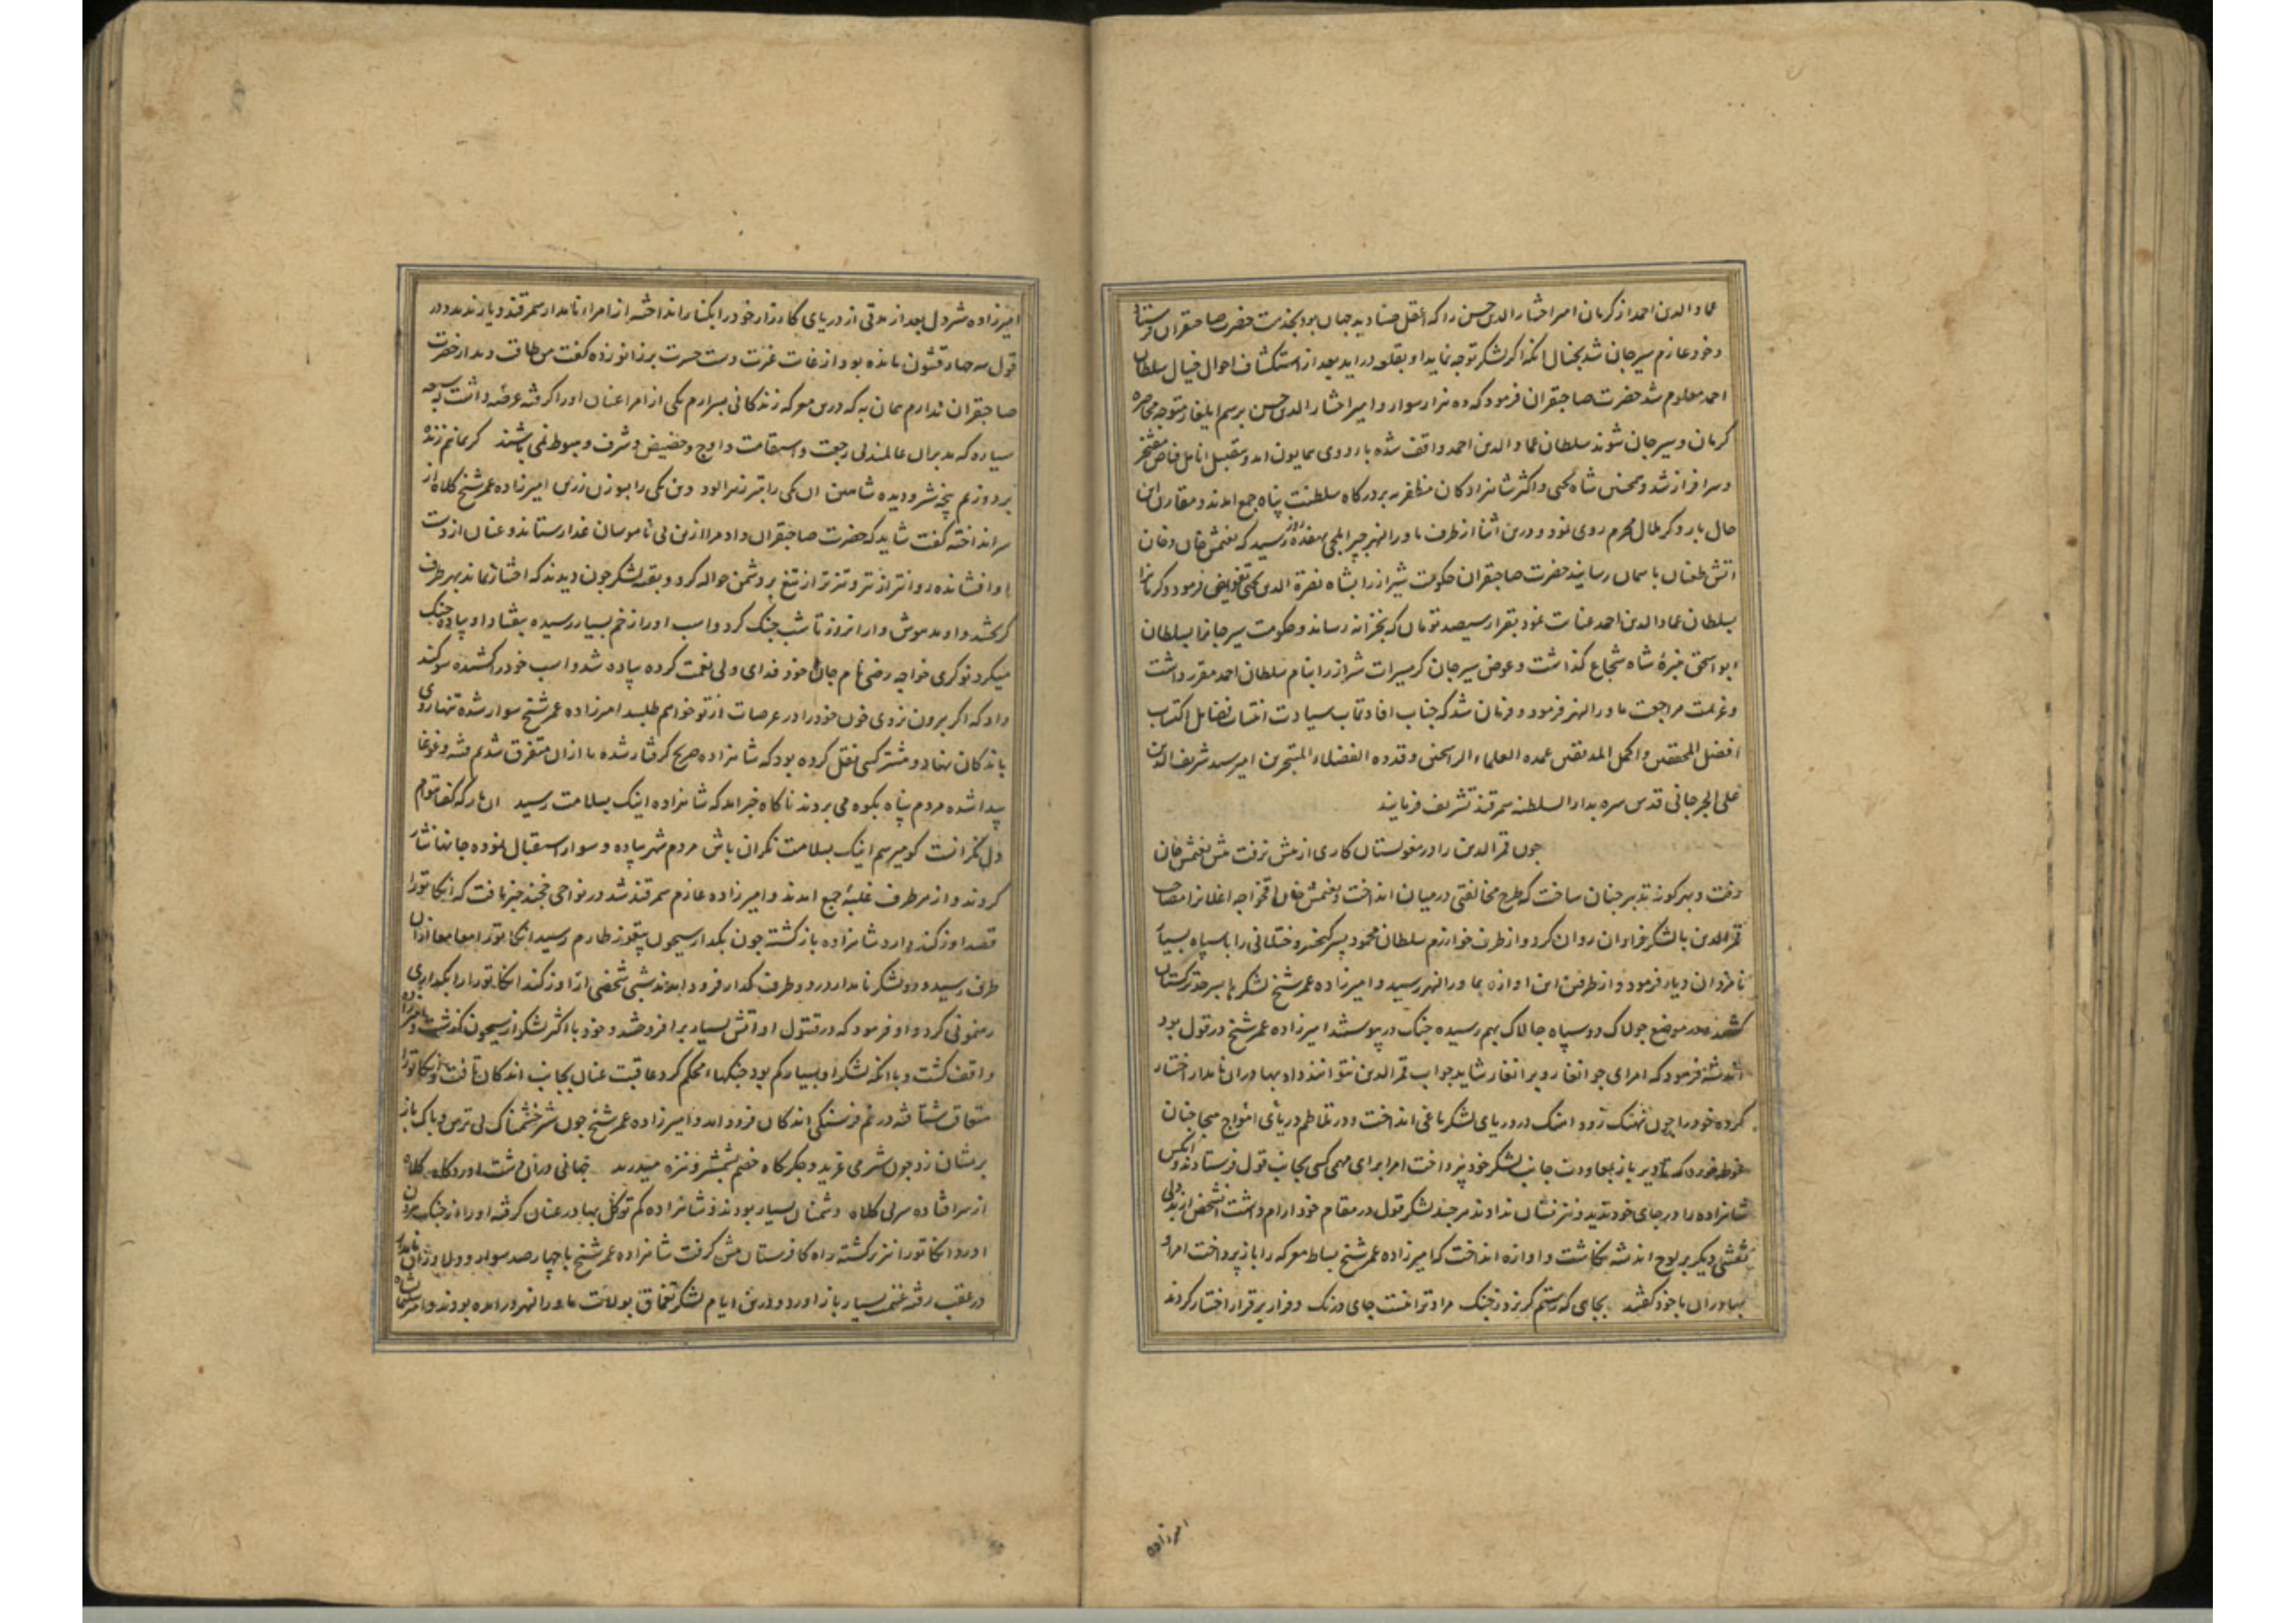 عماد الدین احمد از کرمان امیر اختیار الدین حسن را که اعقل صنادید جهان بود بخدمت حضرت صاحبقران فرستاد
و خود عازم سیرجان شد بخیال انکه اگر لشکر توجه نماید او بقلعه در اید بعد از استکشاف احوال خیال سلطان
احمد معلوم شد حضرت صاحبقران فرمود که ده هزار سوار و امیر اختیار الدین حسن برسم ایلغار متوجه محاصره
کرمان و سیرجان شوند سلطان عماد الدین احمد واقف شده باردوی همایون امد و بتقبیل انامل فیاض مفتخر
و سرافراز شد و همچنین شاه یحیی و اکثر شاهزادکان مظفریه بدرکاه سلطنت پناه جمع امدند و مقارن این
حال بارو کر هلال محرم روی نمود و درین اثنا از طرف ماورالنهر ایلچی بهفده روز رسید که تغتمش خان دخان
اتش طغیان باسمان رسانید حضرت صاحبقران حکومت شیراز را بشاه نصرة الدین یحیی تفویض فرمود و کرمانرا
بسلطان عماد الدین احمد عنایت نمود بقرار سیصد تومان که بخزانه رساند و حکومت سیرجانرا بسلطان
ابو اسحق نبیرهٔ شاه شجاع کذاشت و عوض سیرجان کرمسیرات شیراز را بنام سلطان احمد مقرر داشت
و عزیمت مراجعت ماورالنهر فرمود و فرمان شد که جناب افادتماب سیادت انتساب فضایل اکتساب
افضل المحققین و اکمل المدققین عمده العلماء الراسخین و قدوه الفضلاء المتبحرین امیر سید شریف الدین
علی الجرجانی قدس سره بدارالسلطنه سمرقند تشریف فرمایند
چون قمرالدین را در مغولستان کاری از پیش نرفت پیش تغتمش خان
رفت و بهر کونه تدبیر چنان ساخت که طرح مخالفتی در میان انداخت و تغتمش خان اقخواجه اغلانرا مصاحب
قمرالدین با لشکر فراوان روان کرد و از طرف خوارزم سلطان محمود پسر کیخسرو ختلانی را با سپاه بسیار
نامزد ان دیار فرمود و از طرفین این اوازه بماورالنهر رسید و امیرزاده عمر شیخ لشکر تا سرحد ترکستان
کشیده در موضع جولاک دو سپاه چالاک بهم رسیده جنک در پیوستند امیرزاده عمر شیخ در قول بود
اندیشه فرمود که امرای جوانغار و برانغار شاید جواب قمرالدین نتوانند داد بهادران نامدار اختیار
کرده خود را چون نهنک زود اهنک در دریای لشکر یاغی انداخت و در تلاطم دریای امواج هیجا چنان
غوطه خورد که تا دیر باز بمعاودت جانب لشکر خود نپرداخت امرا برای مهمی کسی بجانب قول فرستادند و انکس
شاهزاده را در جای خود ندید و نیز نشان ندادند هر چند لشکر قول در مقام خود ارام داشت شخص از بددلی
نقشی دیکر بر لوح اندیشه نکاشت و اوازه انداخت که امیرزاده عمر شیخ بساط معرکه را باز پرداخت امرا و
بهادران با خود کفتند بجایی که رستم کریزد ز جنک مرا و ترا نیست جای درنک و فرار بر قرار اختیار کردند
امیرزاده
امیرزاده شیردل بعد از مدتی از دریای کارزار خود را بکنار انداخته از امرا نامدار سمرقند دیار ندید و در
قول سه چهار قشون مانده بود از غایت غیرت دست حسرت بر زانو زده کفت من طاقت دیدار حضرت
صاحبقران ندارم همان به که درین معرکه زندکانی بسپارم یکی از امرا عنان او را کرفته عرضه داشت سبعه
سیاره که مدبران عالمند بی رجعت و استقامت و اوج و حضیض و شرف و هبوط نمی باشند کر بمانیم زنده
بردوزیم
سر انداخته کفت شاید که حضرت صاحبقران داد مرا ازین بی ناموسان غدار ستاند و عنان از دست
او افشانده روانتر از تیر و تیزتر از تیغ بر دشمن حواله کرد و بقیه لشکر چون دیدند که اختیار نماند بهر طرف
کریختند و او مدهوش وار انروز تا شب جنک کرد و اسب او را زخم بسیار رسیده بیفتاد او پیاده جنک
میکرد نوکری خواجه رضی نام جان خود فدای ولی نعمت کرده پیاده شد و اسب خود را کشیده سوکند
داد که اگر بیرون نروی خون خود را در عرصات از تو خواهم طلبید امیرزاده عمر شیخ سوار شده تنها روی
باندکان نهاد و پیشتر کسی نقل کرده بود که شاهزاده کرفتار شده ما ازان متفرق شدیم فتنه و غوغا
پیدا شده مردم پناه بکوه می بردند ناکاه خبر امد که شاهزاده اینک بسلامت رسید ان یار که کفتا بتوام
دل نکرانست کو میرسم اینک بسلامت نکران باش مردم شهر پیاده و سوار استقبال نموده جانها نثار
کردند و از هر طرف غلبهٔ جمع امدند و امیرزاده عازم سمرقند شد در نواحی خجند خبر یافت که انکاتورا
قصد اوزکند دارد شاهزاده بازکشته چون بکدار سیحون رسید انکاتورا معا معا ازان
طرف رسید و دو لشکر نامدار در دو طرف کدار فرود امدند شبی شخصی از اوزکند انکاتورا را بکداری
رهنمونی کرد و او فرمود که در قیتول او اتش بسیار برافروختند و خود با اکثر لشکر از سیحون کذشت و امیرزاده
واقف کشت و با انکه لشکر او بسیار کم بود جنکها محکم کرد عاقبت عنان بجانب اندکان تافت و انکاتورا
متعاقب شتافته در نیم فرسنکی اندکان فرود امد و امیرزاده عمر شیخ چون شیر خشمناک بی ترس و باک باز
بریشان زد چون شیر می غرید و جکرکاه خصم بشمشیر و نیزه میدرید
از سر افتاده سر بی کلاه دشمنان بسیار بودند و شاهزاده کم توکل بهادر عنان کرفته او را از جنک بیرون
اورد و انکاتورا نیز برکشته راه کافرستان پیش کرفت شاهزاده عمر شیخ با چهارصد سوار
در عقب رفته غنیمت بسیار باز اورد و درین ایام لشکر قفچاق بولایت ماورالنهر درامده بودند و امیر سلیمانشاه